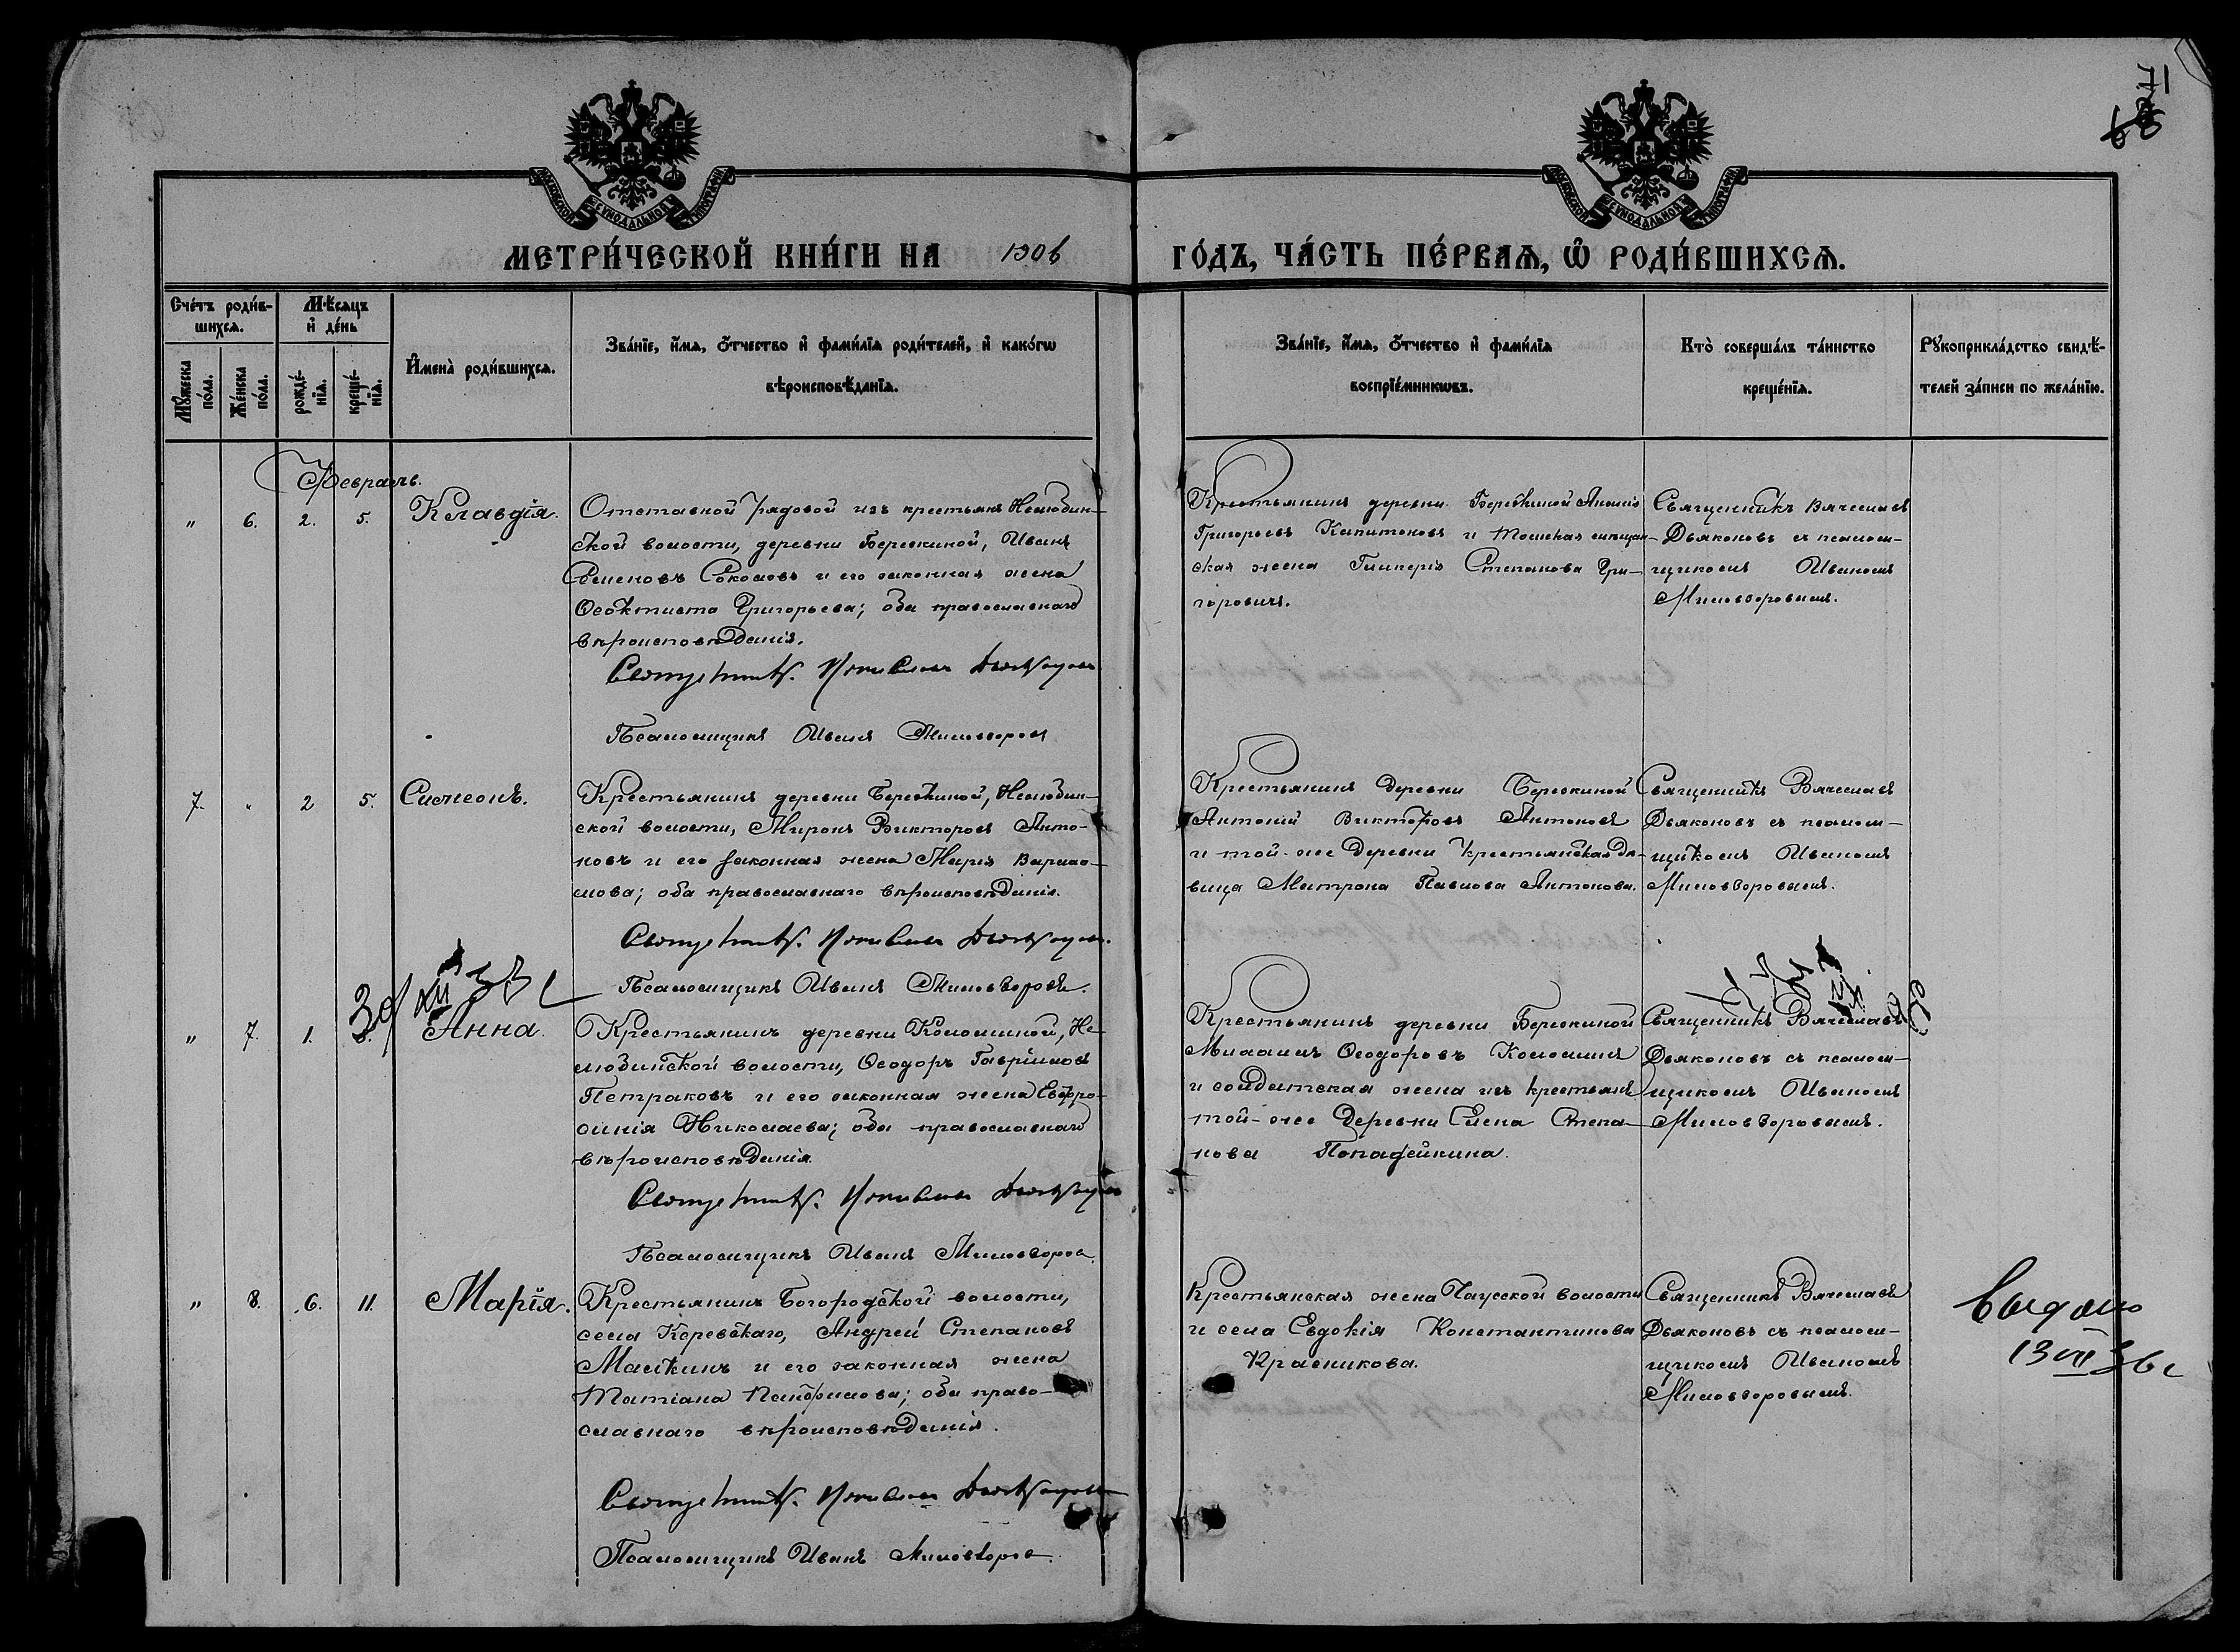 71
68
МОСКОВСКОЙ СѴНОДАЛЬНОЙ ТИПОГРАФІИ
МОСКОВСКОЙ СѴНОДАЛЬНОЙ ТИПОГРАФІИ
МЕТРИ́ЧЕСКОЙ КНИ́ГИ НА 1906 ГО́ДЪ, ЧА́СТЬ ПЕ́РВАѦ, Ѡ҆ РОДИ́ВШИХСѦ.
Сче́тъ роди́в-
шихсѧ.
Мꙋ́жеска по́ла.
Же́нска по́ла.
Мѣ́сѧцъ
и҆ де́нь
рожде́-
нїѧ.
креще́-
нїѧ.
И҆мена̀ роди́вшихсѧ.
Зва́нїе, и҆́мѧ, ѻ҆́тчество и҆ фами́лїѧ роди́телей, и҆ како́гѡ
вѣроисповѣ́данїѧ.
Зва́нїе, и҆́мѧ, ѻ҆́тчество и҆ фами́лїѧ
воспрїе́мникѡвъ.
Кто̀ соверша́лъ та́инство
креще́нїѧ.
Рꙋкоприкла́дство свидѣ́-
телей за́писи по жела́нїю.
Февраль.
" 6. 2. 5. Клавдія.
Отставной рядовой изъ крестьянъ Нелюбин-
ской волости, деревни Березкиной, Иванъ
Семеновъ Соколовъ и его законная жена
Ѳеоктиста Григорьева; оба православнаго
вѣроисповѣданія.
Священникъ Дьяконовъ
Псаломщикъ Иванъ Миловзоровъ
Крестьянинъ деревни Березкиной
Григорьевъ Капитоновъ и Томская мѣщан-
ская жена Гликерія Степанова Гри-
горовичъ.
Священникъ Вячеславъ
Дьяконовъ съ псалом-
щикомъ Иваномъ
Миловзоровымъ.
7. " 2 5. Симеонъ.
Крестьянинъ деревни Березкиной, Нелюбин-
ской волости, Миронъ Викторовъ Анто-
новъ и его законная жена Марія Варлаа-
мова; оба православнаго вѣроисповѣданія.
Священникъ Дьяконовъ.
Псаломщикъ Иванъ Миловзоровъ.
Крестьянинъ деревни Березкиной
Антоній Викторовъ Антоновъ
и той-же деревни крестьянская дѣ-
вица Матрона Павлова Антонова.
Священникъ Вячеславъ
Дьяконовъ съ псалом-
щикомъ Иваномъ
Миловзоровымъ.
30/XII 33 г
" 7. 1. Анна.
Крестьянинъ деревни Коломиной, Не-
любинской волости, Ѳеодоръ Гавріиловъ
Петраковъ и его законная жена Евфро-
синія Николаева; оба православнаго
вѣроисповѣданія.
Священникъ Дьяконовъ
Псаломщикъ Иванъ Миловзоровъ.
Крестьянинъ деревни Березкиной
Михаилъ Ѳеодоровъ Коломинъ
и солдатская жена изъ крестьянъ
той-же деревни Елена Степа-
нова Попадейкина.
Священникъ Вячеславъ
Дьяконовъ съ псалом-
щикомъ Иваномъ
Миловзоровымъ.
" 8. 6. 11. Марія.
Крестьянинъ Богородской волости,
села Каревскаго, Андрей Степановъ
Малкинъ и его законная жена
Татіана Панфилова; оба право-
славнаго вѣроисповѣданія.
Священникъ Дьяконовъ
Псаломщикъ Иванъ Миловзоровъ.
Крестьянская жена Чаусской волости
и села Евдокія Константинова
Красикова.
Священникъ Вячеславъ
Дьяконовъ съ псалом-
щикомъ Иваномъ
Миловзоровымъ.
Выдано
13 VII 36 г